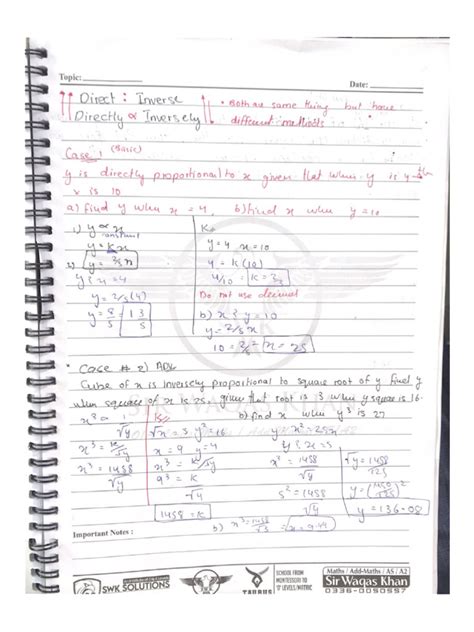 Topic:
Date:
Direct : Inverse
Directly ∝ Inversely
• Both are same thing but have
different methods.
Case 1 (Basic)
y is directly proportional to x given that when y is 4
x is 10
a) find y when x = 4, b) find x when y = 10
1) y ∝ x
constant
y = kx
y = 2/5x
y ? x = 4
y = 2/5(4)
y = 8/5 = 1 3/5
K
y = 4 x = 10
4 = k(10)
4/10 = k = 2/5
Do not use decimal
b) x ? y = 10
y = 2/5x
10 = 2/5x x = 25
• Case # 2)
Cube of x is inversely proportional to square root of y find y
when square of x is 25, given that root x is 3 when y square is 16.
b) find x when y³ is 27
x³ ∝ 1/√y
x³ = k/√y
x³ = 1458/√y
K
√x = 3 y² = 16
x = 9 y = 4
x³ = k/√y
9³ = k/√4
1458 = k
y x² = 25
y ? x = 5
x³ = 1458/√y
5³ = 1458/√y
y = 136.08
b) x³ = 1458/√3 = x = 9.44
Important Notes :
SWK SOLUTIONS
TAURUS
SCHOOL FROM
MONTESSORI TO
O' LEVELS/MATRIC
Maths / Add-Maths / AS / A2
Sir Waqas Khan
0336-0050557